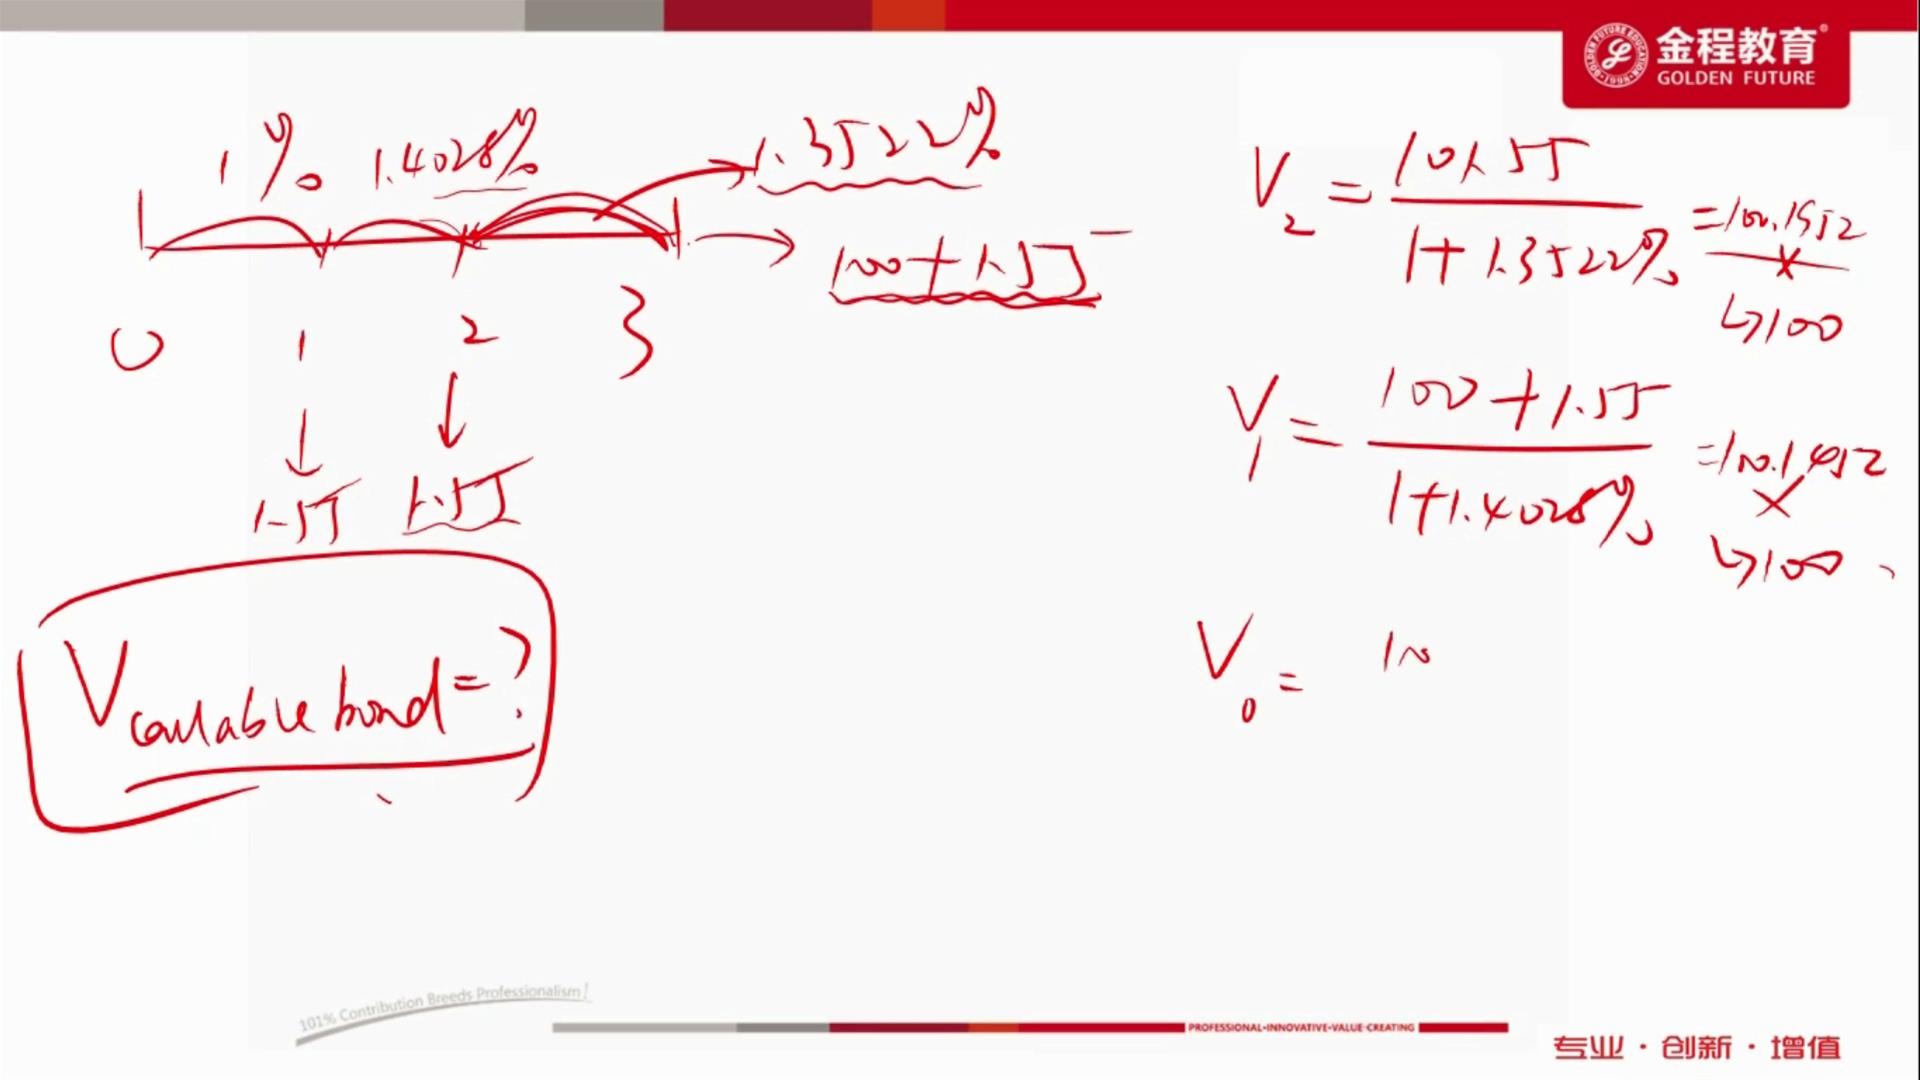 金程教育
GOLDEN FUTURE
1% 1.4028% 1.3522%
100+1.55
0 1 2 3
1.55 1.55
Vcallable bond=?
V2 = 101.55 / 1+1.3522% =100.1952
↳100
V1 = 100+1.55 / 1+1.4028% =100.1452
↳100
V0 = 100
101% Contribution Breeds Professionalism!
PROFESSIONAL·INNOVATIVE·VALUE-CREATING
专业·创新·增值